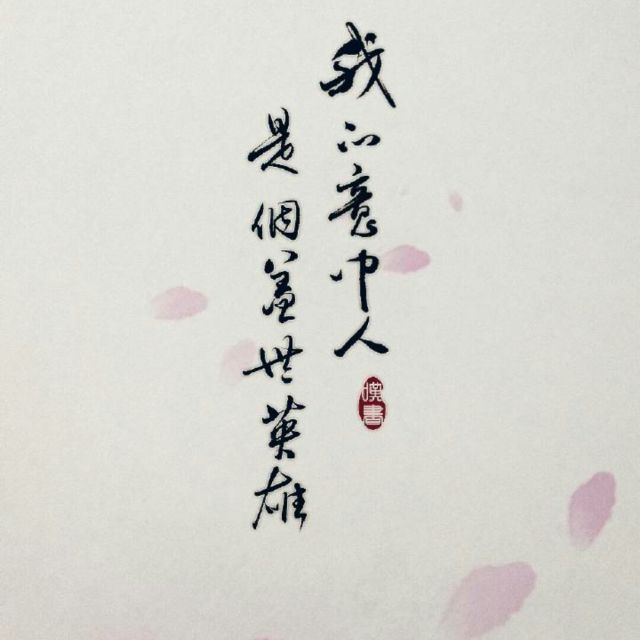 我的意中人
是個蓋世英雄